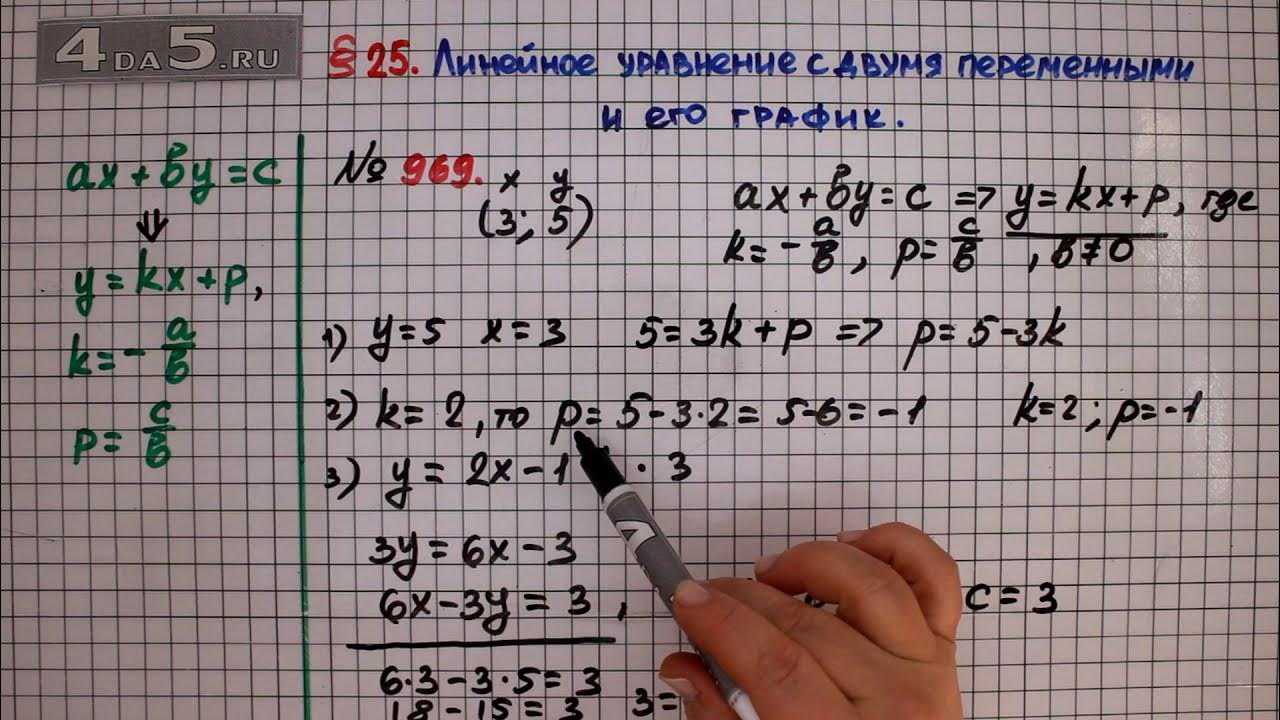 4DA5.RU
§ 25. Линейное уравнение с двумя переменными
и его график.
ax + by = c
⇓
y = kx + p,
k = - a/b
p = c/b
№ 969.
x y
(3; 5)
ax + by = c => y = kx + p, где
k = - a/b, p = c/b, b ≠ 0
1) y = 5 x = 3 5 = 3k + p => p = 5 - 3k
2) k = 2, то p = 5 - 3·2 = 5 - 6 = -1 k = 2; p = -1
3) y = 2x - 1 · 3
3y = 6x - 3
6x - 3y = 3, c = 3
6·3 - 3·5 = 3
18 - 15 = 3 3 =